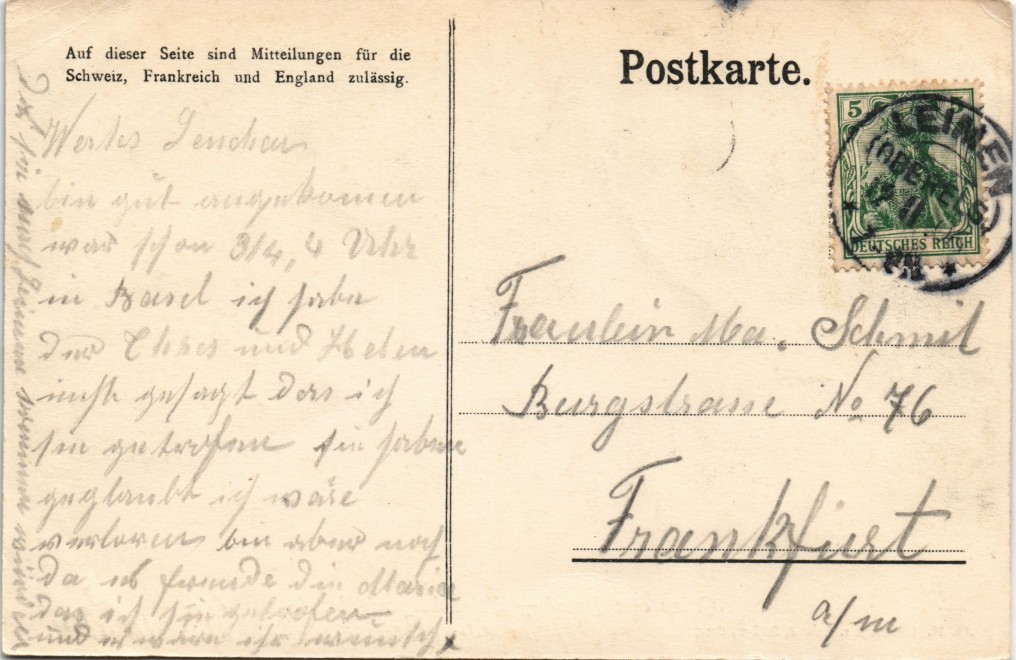 Auf dieser Seite sind Mitteilungen für die
Schweiz, Frankreich und England zulässig.
Postkarte.
5
LEIMEN
(OBERELS)
DEUTSCHES REICH
Wertes Lenchen
bin gut angekomen
war schon 3/4, 4 Uhr
in Basel ich habe
und Helen
nicht gesagt das ich
sie getrofen sie haben
geglaubt ich wäre
verloren bin aber noch
da es freude die Maria
das ich sie getrofen
und
Fraulein Ma. Schmit
Burgstrasse No 76
Frankfurt
a/m